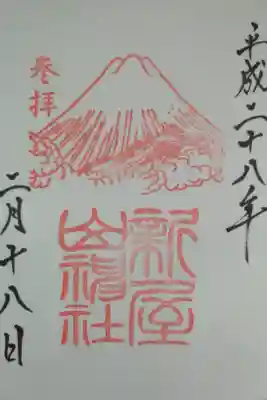 平成二十八年
新屋
山神社
参拝記念
二月十八日